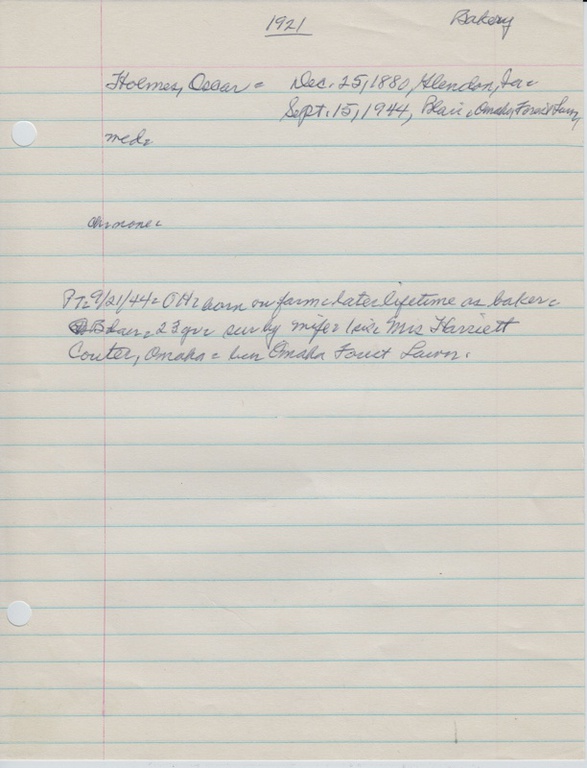 1921 Bakery
Holmes, Oscar = Dec. 25, 1880, Glendon, Ia =
Sept. 15, 1944, Blair = Omaha, Forest Lawn
med =
ch = none =
PT = 9/21/44 = OH = born on farm = later lifetime as baker =
Blair = 23 yr = sur by wife = 1 sis = Mrs Harriett
Couter, Omaha = bur Omaha Forest Lawn.